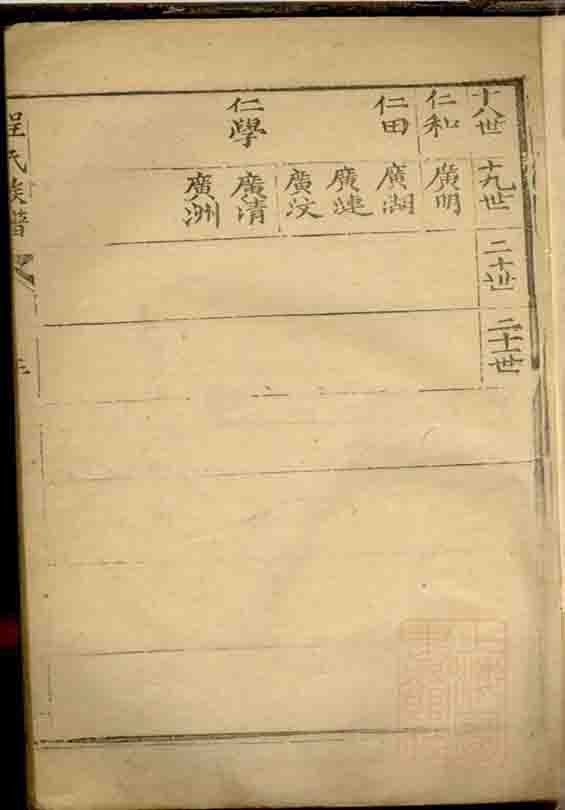 十八世
十九世
二十世
二十一世
仁和
廣明
仁田
廣湖
廣漣
廣汶
仁學
廣清
廣洲
程氏族譜